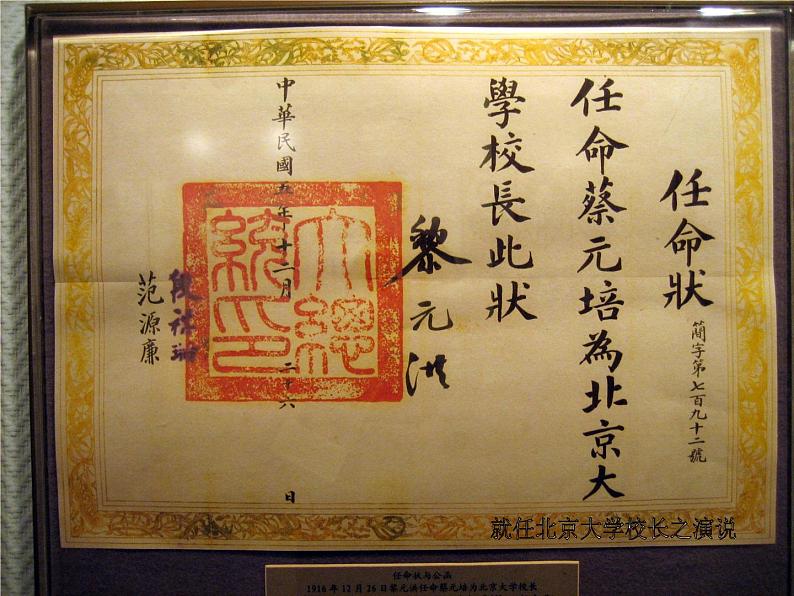 任命狀
簡字第七百九十二號
任命蔡元培為北京大
學校長此狀
黎元洪
大總統印
中華民國五年十二月二十六日
段祺瑞
范源廉
就任北京大学校长之演说
任命状与公函
1916 年 12 月 26 日黎元洪任命蔡元培为北京大学校长